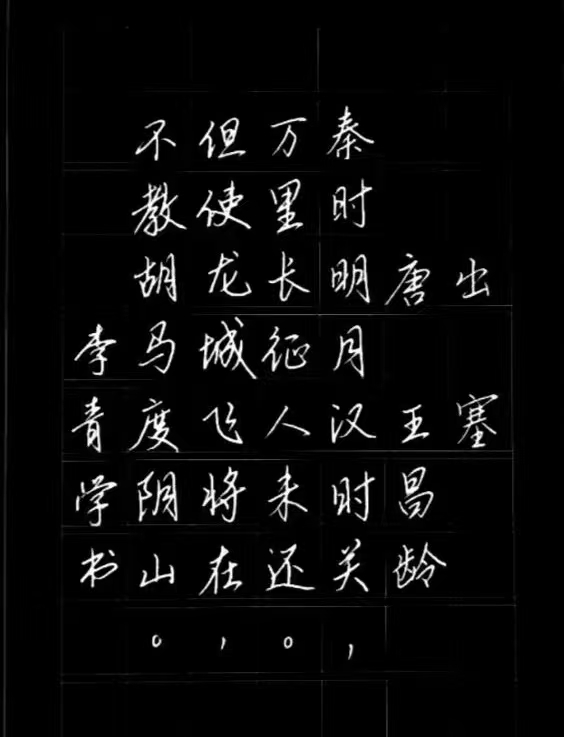 出塞
唐 王昌龄
秦时明月汉时关,
万里长征人未还。
但使龙城飞将在,
不教胡马度阴山。
李青学书